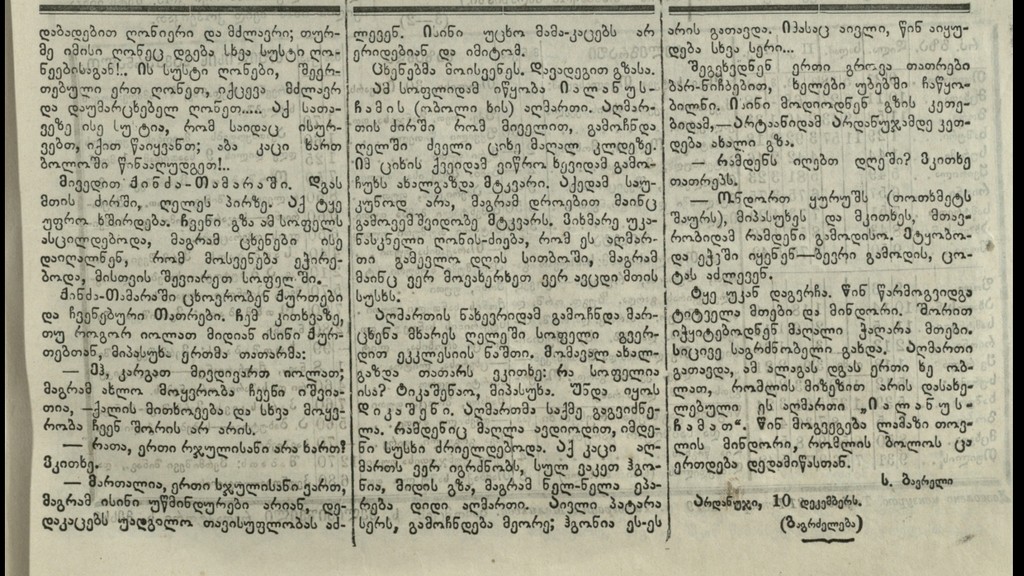 დაბადებით ღონიერი და მძლავრი; თურ-
მე იმისი ღონეც დგება სხვა სუსტი ღო-
ნეებისაგან!.. ის სუსტი ღონები, შეერ-
თებული ერთ ღონეთ, იქცევა მძლავრ
და დაუმარცხებელ ღონეთ..... აქ სათა-
ვეზე ისე სუტია, რომ საიდაც ისურ-
ვებთ, იქით წაიყვანთ; აბა კაცი ხართ
ბოლოში წინააღუდგეთ!..
მივედით ქინძა-თამარაში. დგას
მთის ძირში, ღელეს პირზე. აქ ტყე
უფრო ხშირდება. ჩვენი გზა ამ სოფელს
ასცილდებოდა, მაგრამ ცხენები ისე
დაიღალნენ, რომ მოსვენება ეჭირე-
ბოდა, მისთვის შევიარეთ სოფელში.
ქინძა-თამარაში ცხოვრობენ ქურთები
და ჩვენებური თათრები. ჩემ კითხვაზე,
თუ როგორ იოლათ მიდიან ისინი ქურ-
თებთან, მიპასუხა ერთმა თათარმა:
— მჰ, კარგათ მივდივართ იოლათ;
მაგრამ ახლო მოყვრობა ჩვენი იშვია-
თია, —ქალის მითხოვება და სხვა მოყვ-
რობა ჩვენ შორის არ არის.
— რათა, ერთი რჯულისანი არა ხართ?
ვკითხე.
— მართალია, ერთი სჯულისანი ვართ,
მაგრამ ისინი უწმინდურები არიან, დე-
დაკაცებს უადგილო თავისუფლობას აძ-
ლევენ. ისინი უცხო მამა-კაცებს არ
ერიდებიან და იმიტომ.
ცხენებმა მოისვენეს. დავადეგით გზასა.
ამ სოფლიდამ იწყობა იალანუს-
ჩამის (ობოლი ხის) აღმართი. აღმარ-
თის ძირში რომ მიველით, გამოჩნდა
ღელში ძველი ციხე მაღალ კლდეზე.
იმ ციხის ქვეიდამ ვიწრო ხევიდამ გამო-
ჩუხს ახალგაზდა მტკვარი. აქედამ საუ-
კუნოდ არა, მაგრამ დროებით მაინც
გამოვემშვიდობე მტკვარს. ვიხმარე უკა-
ნასკნელი ღონის-ძიება, რომ ეს აღმარ-
თი გამევლო დღის სითბოში, მაგრამ
მაინც ვერ მოვახერხეთ ვერ ავცდი მთის
სუსხს.
აღმართის ნახევრიდამ გამოჩნდა მარ-
ცხენა მხარეს ღელეში სოფელი გვერ-
დით ეკკლესიის ნაშთი. მომავალ ახალ-
გაზდა თათარს ვკითხე: რა სოფელია
ისა? ტიკაშენაო, მიპასუხა. უნდა იყოს
დიკაშენი. აღმართმა საქმე გაგვიძნე-
ლა. რამდენიც მაღლა ავედიოდით, იმდე-
ნი სუსხი ძრიელდებოდა. აქ კაცი აღ-
მართს ვერ იგრძნობს, სულ ვაკეთ ჰგო-
ნია, მიდის გზა, მაგრამ ნელ-ნელა ეპა-
რება დიდი აღმართი. აივლი პატარა
სერს, გამოჩნდება მეორე; ჰგონია ეს-ეს
არის გათავდა. იმასაც აივლი, წინ აიყუ-
დება სხვა სერი...
შეგვხვდნენ ერთი გროვა თათრები
ბარ-ნიჩბებით, ხელები უბებში ჩაწყო-
ბილნი. ისინი მოდიოდნენ გზის კეთე-
ბიდამ,—არტაანიდამ არდანუჯამდე კეთ-
დება ახალი გზა.
— რამდენს იღებთ დღეში? ვკითხე
თათრებს.
— ონდორთ ყურუშს (თოთხმეტს
შაურს), მიპასუხეს და მკითხეს, მთავ-
რობიდამ რამდენი გამოდისო. ეტყობო-
და ეჭვში იყვნენ—ბევრი გამოდის, ცო-
ტას აძლევენ.
ტყე უკან დაგვრჩა. წინ წარმოგვიდგა
ტიტველა მთები და მინდორი. შორით
იჭყიტებოდნენ მაღალი ჭაღარა მთები.
სიცივე საგრძნობელი გახდა. აღმართი
გათავდა, ამ ალაგას დგას ერთი ხე ობ-
ლათ, რომლის მიზეზით არის დასახე-
ლებული ეს აღმართი „იალანუს-
ჩამათ“. წინ მოგვეგება ლამაზი თოვ-
ლის მინდორი, რომლის ბოლოს ცა
ერთდება დედამიწასთან.
ს. ბავრელი
არდანუჯი, 10 დეკემბერს.
(გაგრძელება)